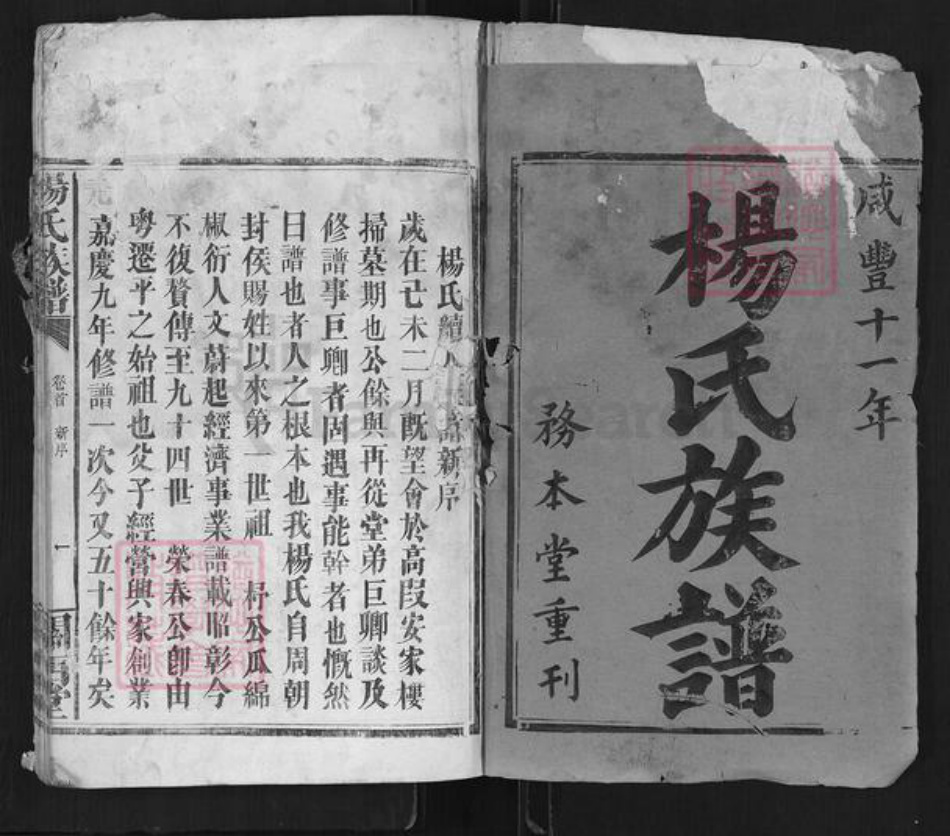 咸豐十一年
楊氏族譜
務本堂重刊
楊氏續
譜新序
歲在己未二月既望會於高叚安家樓
掃墓期也公餘與再從堂弟巨卿談及
修譜事巨卿者固遇事能幹者也慨然
曰譜也者人之根本也我楊氏自周朝
封侯賜姓以來第一世祖 杼公瓜綿
椒衍人文蔚起經濟事業譜載昭彰今
不復贅傳至九十四世 榮春公卽由
粵遷平之始祖也父子經營興家創業
嘉慶九年修譜一次今又五十餘年矣
楊氏族譜
卷首 新序
一